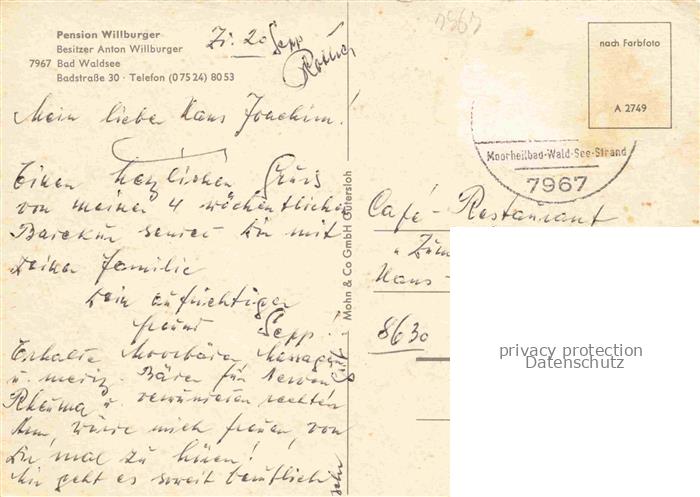 Pension Willburger
Besitzer Anton Willburger
7967 Bad Waldsee
Badstraße 30 · Telefon (07524) 8053
Zi. 20 Sepp
7967
nach Farbfoto
A 2749
Moorheilbad-Wald-See-Strand
7967
Mein lieber Hans Joachim!
Einen herzlichen Gruß
von meiner 4 wöchentlichen
Badekur sendet Dir mit
Deiner Familie
Dein aufrichtiger
Freund Sepp!
Erhalte Moorbäder, Massagen
u. mediz. Bäder für Nerven
Rheuma u. verwundeten rechten
Arm, würde mich freuen, von
Dir mal zu hören!
Mir geht es soweit beruflich
sehr
gut
Mohn & Co GmbH Gütersloh
Café-Restaurant
"Zum
Hans-
8630
privacy protection
Datenschutz